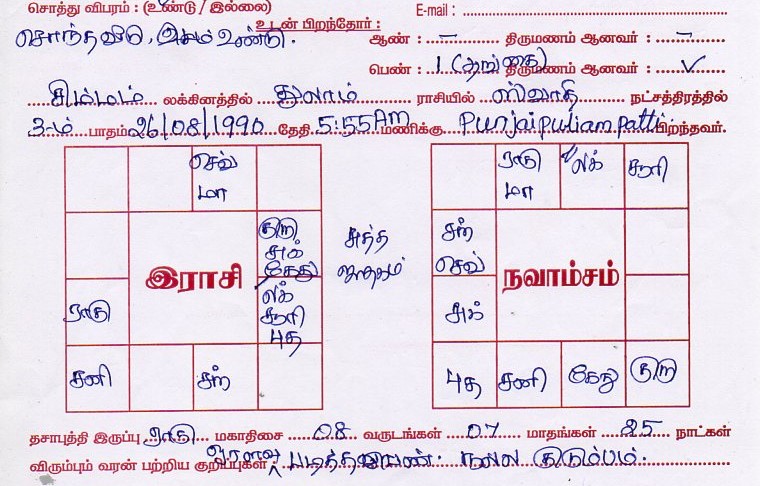 சொத்து விபரம் : (உண்டு / இல்லை) E-mail :
உடன் பிறந்தோர் :
சொந்தவீடு, இடம் உண்டு. ஆண் : – திருமணம் ஆனவர் : –
பெண் : 1 (தங்கை) திருமணம் ஆனவர் : ✓
சிம்மம் லக்கினத்தில் துலாம் ராசியில் ஸ்வாதி நட்சத்திரத்தில்
3-ம் பாதம் 26/08/1990 தேதி 5:55 AM மணிக்கு Punjai puliampatti பிறந்தவர்.
செவ்
மா
குரு
சுக்
கேது
இராசி
ராகு
லக்
சூரி
புத
சனி
சந்
சுத்த
ஜாதகம்
ராகு
மா
லக்
சூரி
சந்
செவ்
நவாம்சம்
சுக்
புத
சனி
கேது
குரு
தசாபுத்தி இருப்பு ராகு மகாதிசை 08 வருடங்கள் 07 மாதங்கள் 25 நாட்கள்
விரும்பும் வரன் பற்றிய குறிப்புகள் : ஓரளவு படித்த நல்ல குடும்பம்.